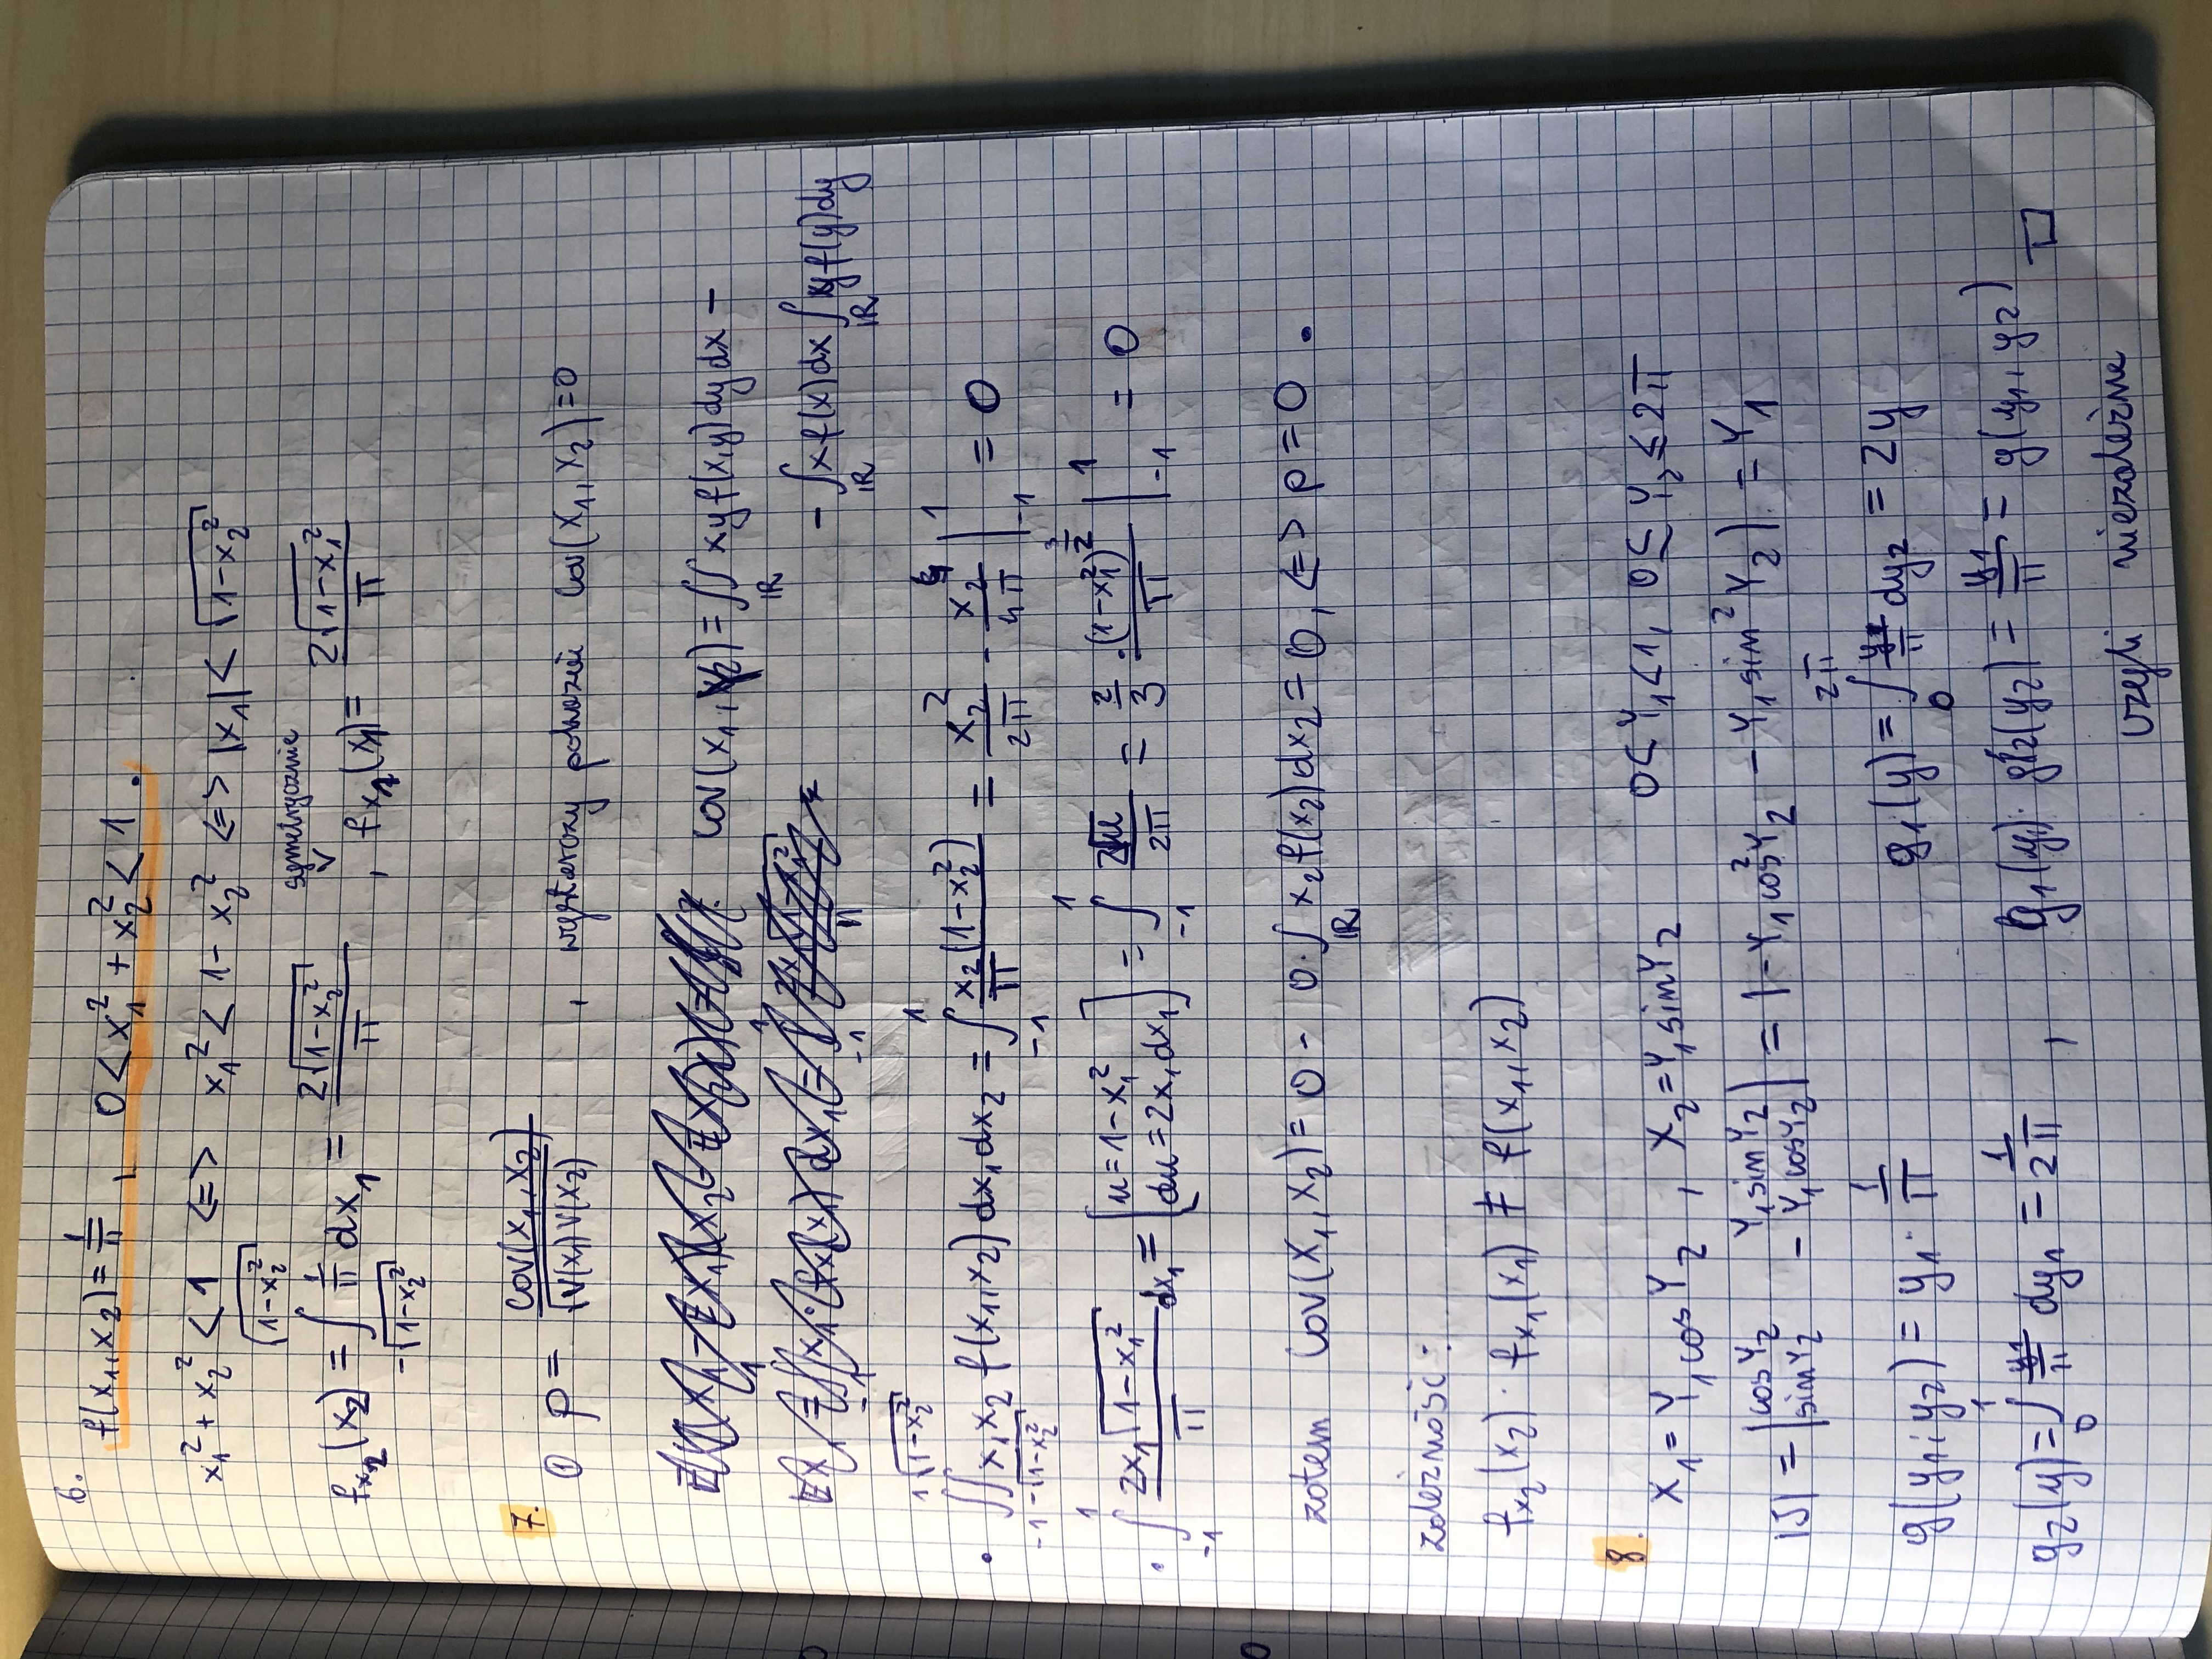 6.
f(x₁,x₂) = 1/π , 0 < x₁² + x₂² < 1 .
x₁² + x₂² < 1 <=> x₁² < 1 - x₂² <=> |x₁| < √(1-x₂²)
symetrycznie
f_{x₂}(x₂) = ∫_{-√(1-x₂²)}^{√(1-x₂²)} 1/π dx₁ = 2√(1-x₂²)/π , f_{x₁}(x₁) = 2√(1-x₁²)/π
7.
① ρ = cov(x₁,x₂)/√(V(x₁)V(x₂)) , wystarczy pokazać Cov(X₁,X₂)=0
Cov(x₁,x₂) = ∬_ℝ xy f(x,y) dy dx -
- ∫_ℝ x f(x) dx ∫_ℝ y f(y) dy
• ∫_{-1}^{1} ∫_{-√(1-x₂²)}^{√(1-x₂²)} x₁x₂ f(x₁,x₂) dx₁ dx₂ = ∫_{-1}^{1} x₂(1-x₂²)/π = x₂²/2π - x₂⁴/4π |_{-1}^{1} = 0
• ∫_{-1}^{1} 2x₁√(1-x₁²)/π dx₁ = [u = 1-x₁² du = 2x₁dx₁] = ∫_{-1}^{1} 2√u/2π = 2/3 · (1-x₁²)^{3/2}/π |_{-1}^{1} = 0
zatem Cov(X₁,X₂) = 0 - 0·∫_ℝ x₂ f(x₂) dx₂ = 0, <=> ρ = 0 .
zależność:
f_{x₂}(x₂) · f_{x₁}(x₁) ≠ f(x₁,x₂)
8.
X₁ = Y₁cosY₂ , X₂ = Y₁sinY₂ 0 ≤ Y₁ < 1, 0 ≤ Y₂ ≤ 2π
|J| = |cosY₂ Y₁sinY₂ sinY₂ - Y₁cosY₂| = |-Y₁cos²Y₂ - Y₁sin²Y₂| = Y₁
g(y₁,y₂) = y₁ · 1/π g₁(y) = ∫_0^{2π} y/π dy₂ = 2y
g₂(y) = ∫_0^1 y₁/π dy₁ = 1/2π , g₁(y₁)·g₂(y₂) = y₁/π = g(y₁,y₂) □
czyli niezależne